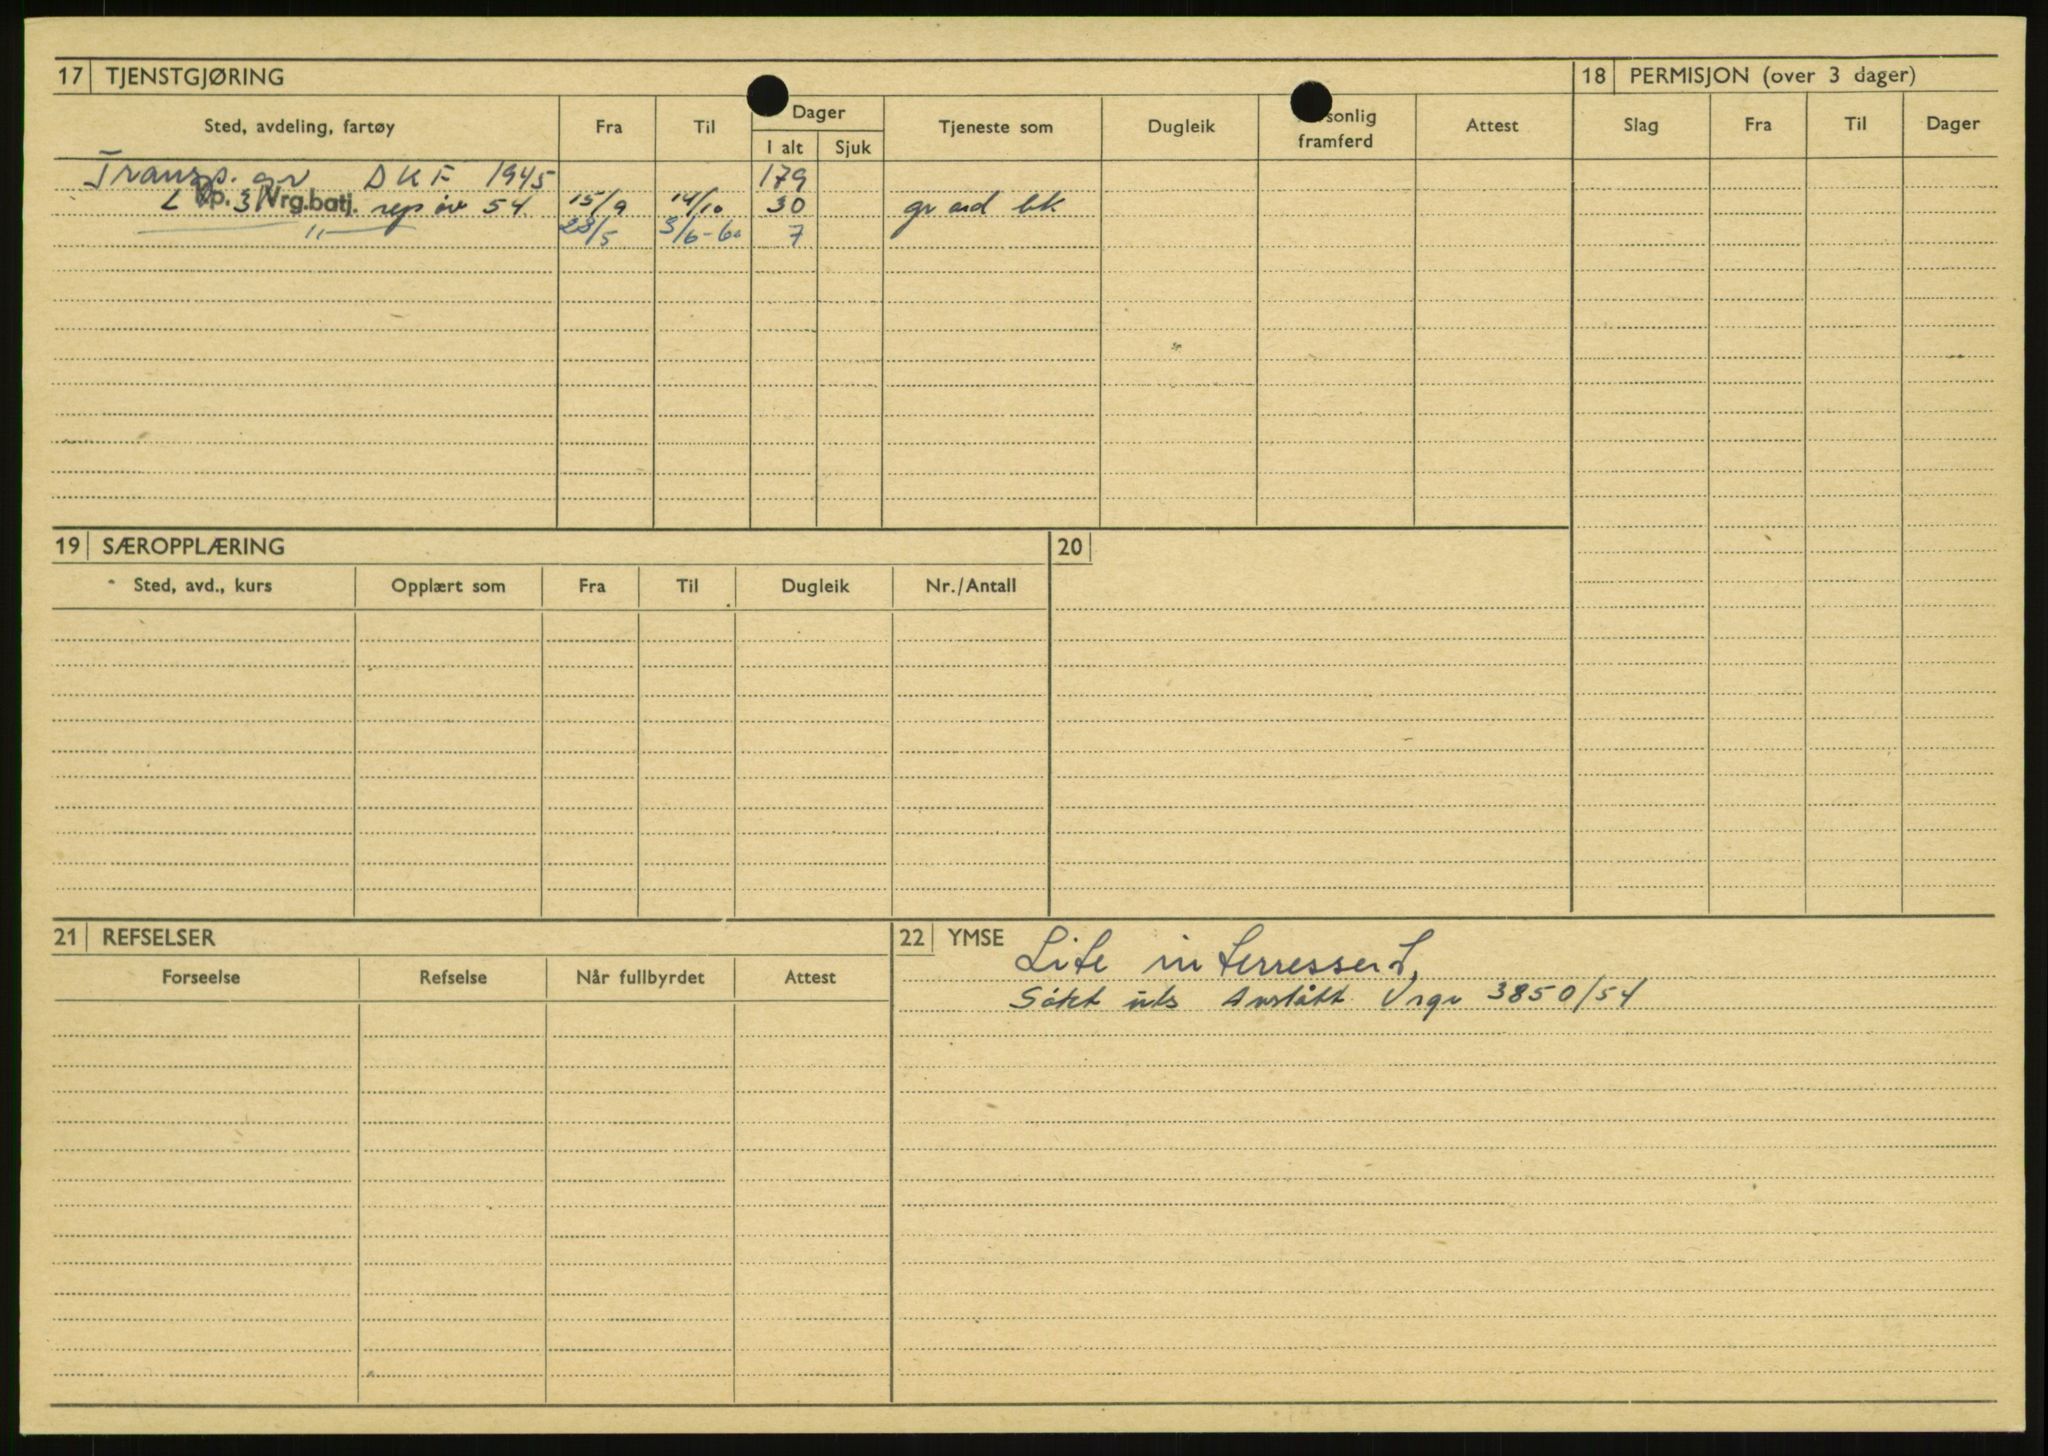 17 TJENSTGJØRING
18 PERMISJON (over 3 dager)
Sted, avdeling, fartøy Fra Til Dager Tjeneste som Dugleik sonlig framferd Attest Slag Fra Til Dager
I alt Sjuk
Transp. gr DKF 1945 179
2 Kp. 3/Vrg.batj. rep øv 54 15/9 14/10 30 gr ord bk
" 28/5 3/6-60 7
19 SÆROPPLÆRING
20
Sted, avd., kurs Opplært som Fra Til Dugleik Nr./Antall
21 REFSELSER
22 YMSE Lite interressert,
Forseelse Refselse Når fullbyrdet Attest
Søkt uts Avslått Vrgr 3850/54